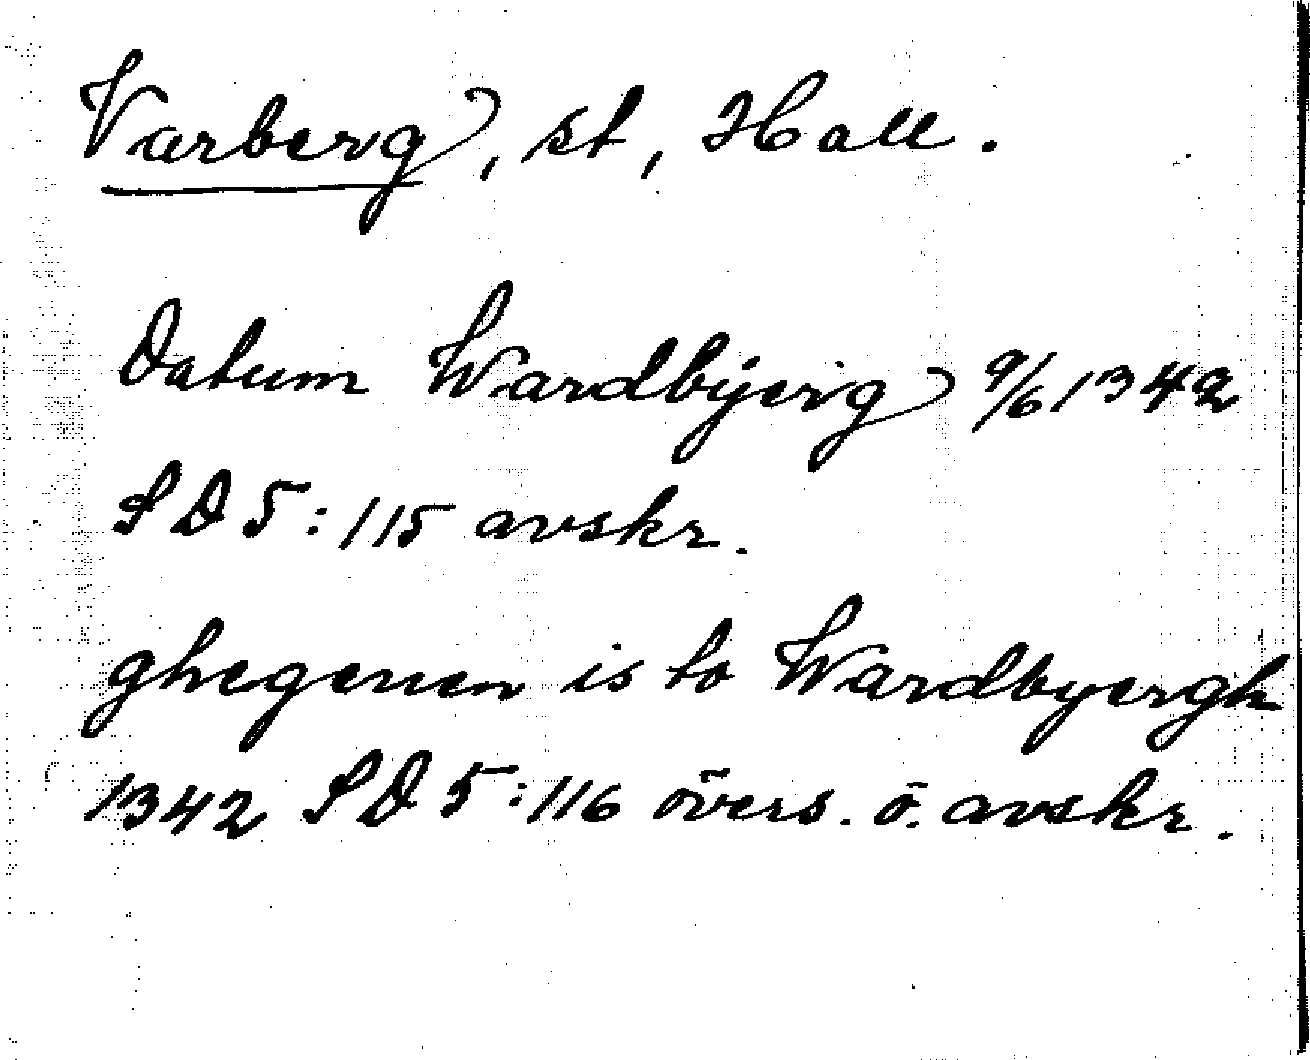 Varberg, st, Hall.
Datum Wardbyerg 9/6 1342
SD 5:115 avskr.
ghegenen is to Wardbyergh
1342 SD 5:116 övers. ö. avskr.